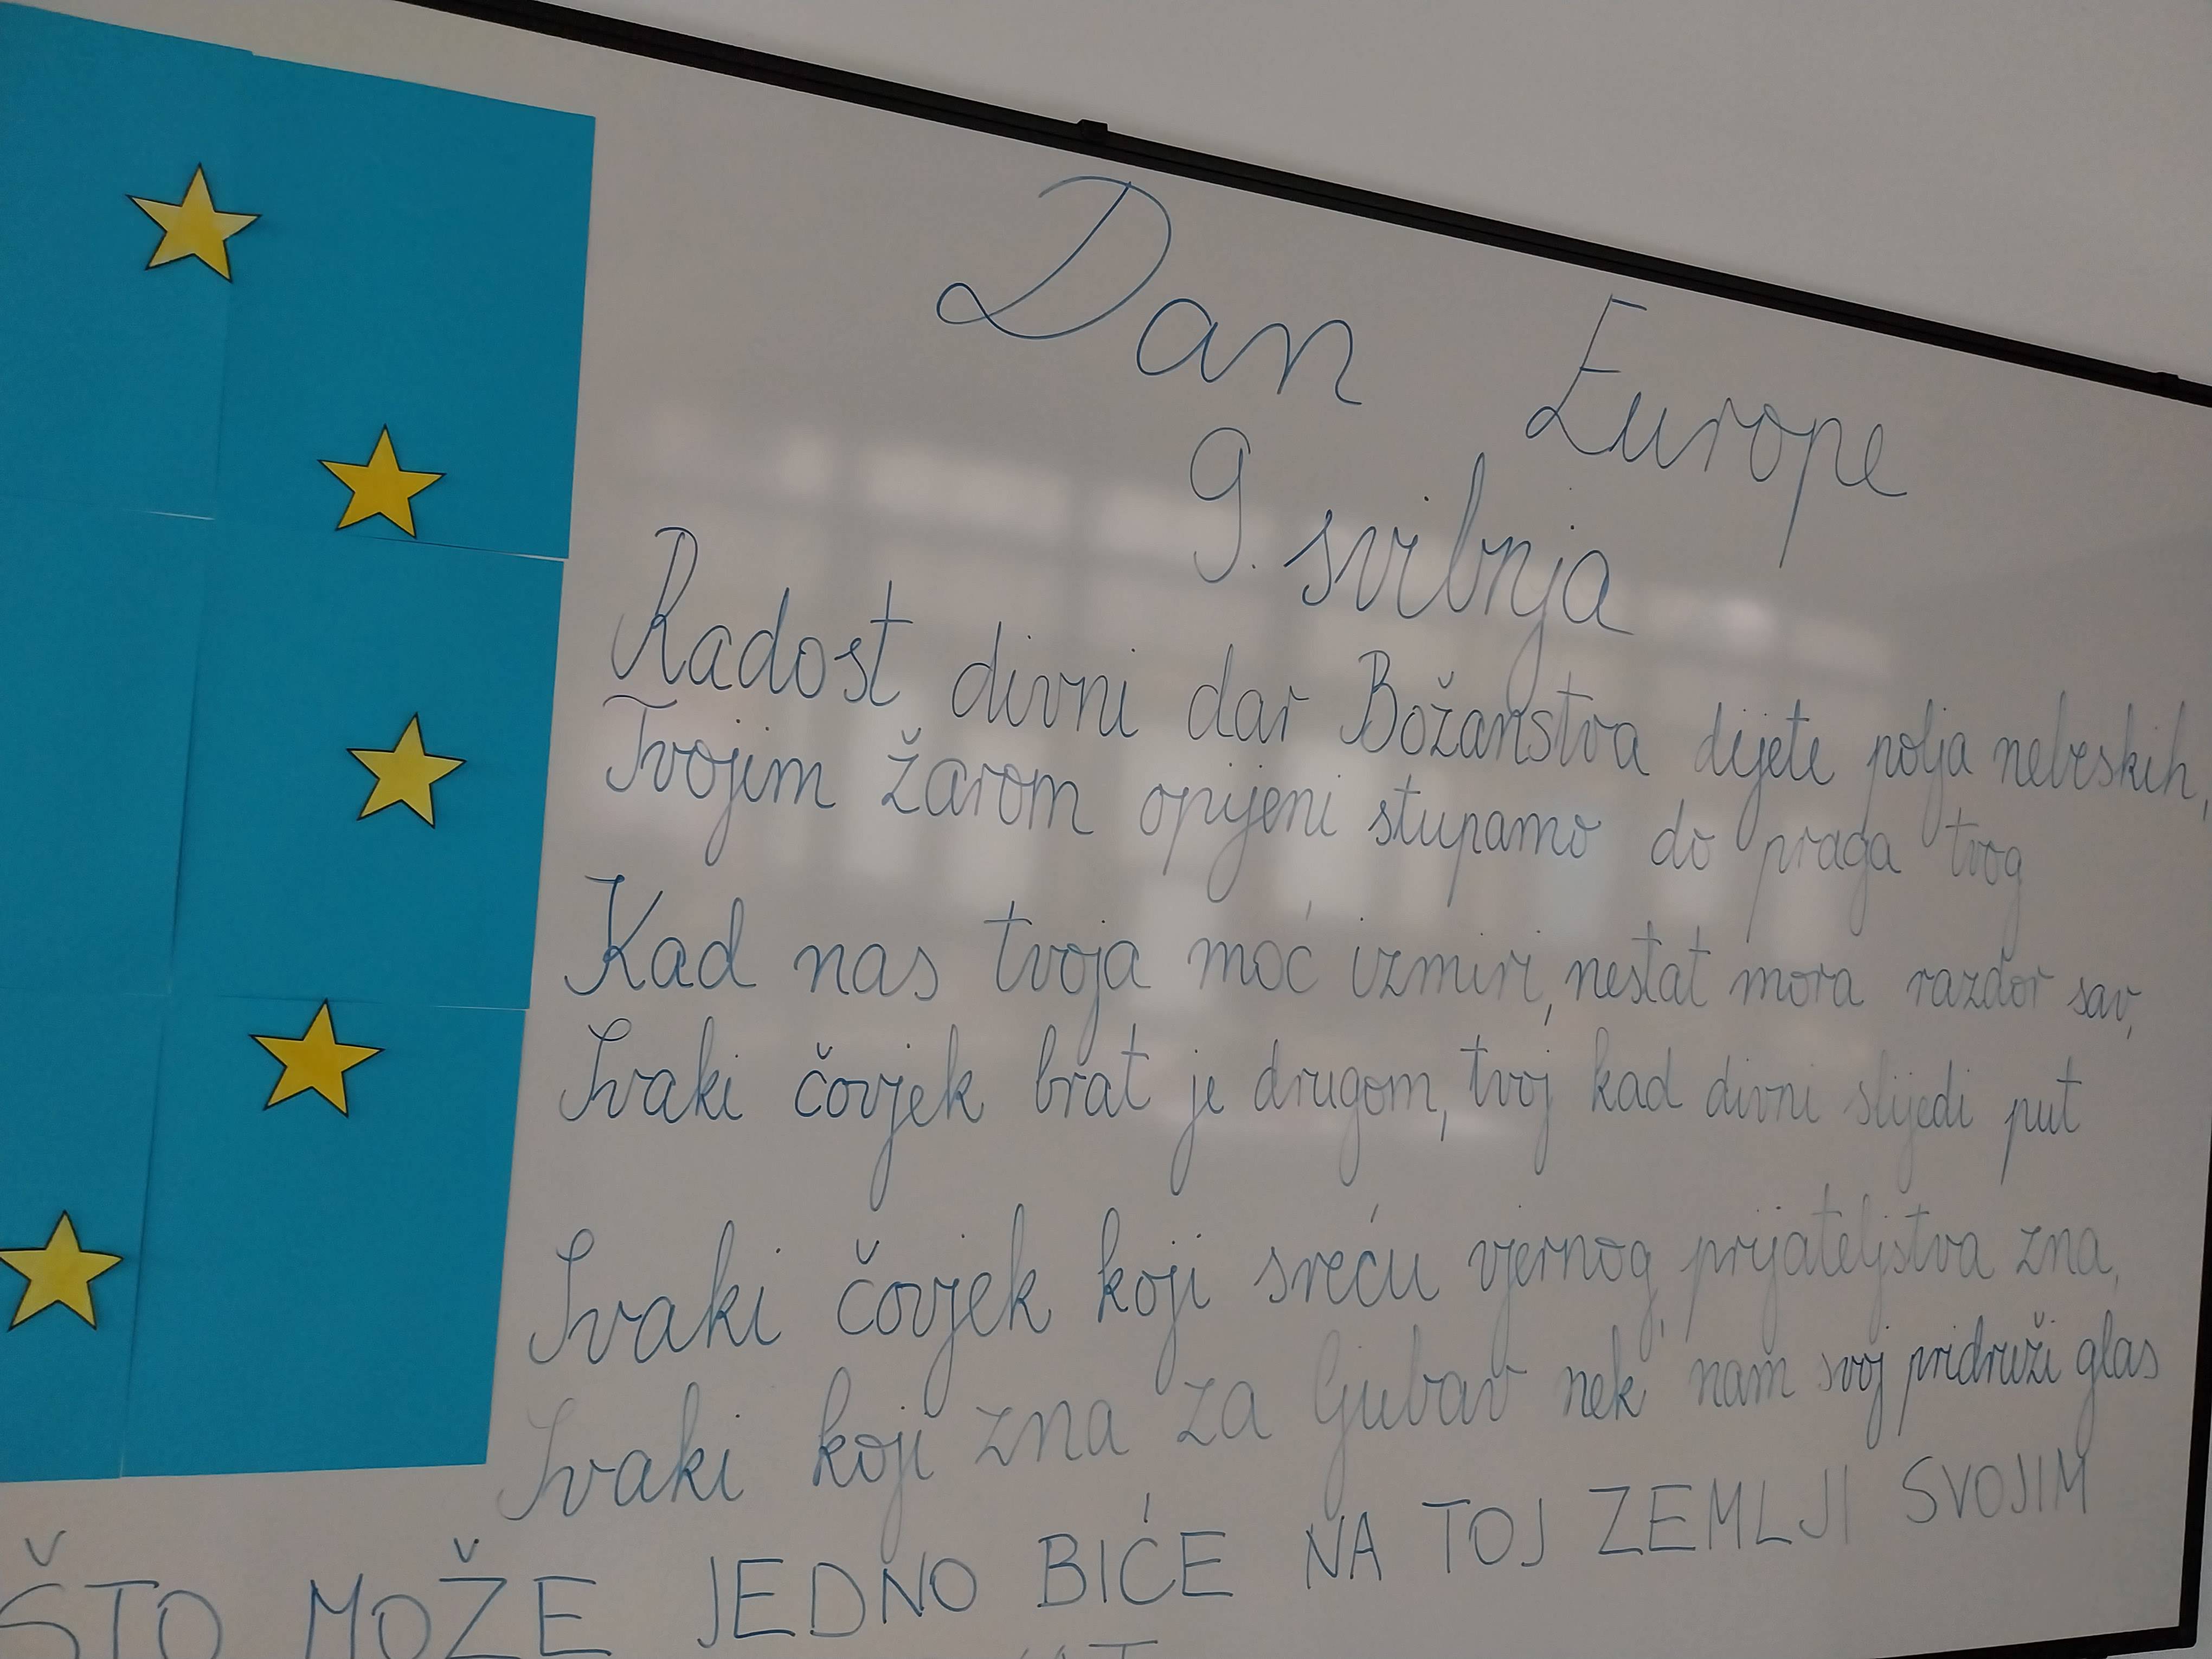 Dan Europe
9. svibnja
Radost divni dar Božanstva dijete polja nebeskih,
Tvojim žarom opijeni stupamo do praga tvog
Kad nas tvoja moć izmiri, nestat mora razdor sav,
Svaki čovjek brat je drugom, tvoj kad divni slijedi put
Svaki čovjek koji sreću vjernog prijateljstva zna,
Svaki koji zna za ljubav nek' nam svoj pridruži glas
ŠTO MOŽE JEDNO BIĆE NA TOJ ZEMLJI SVOJIM